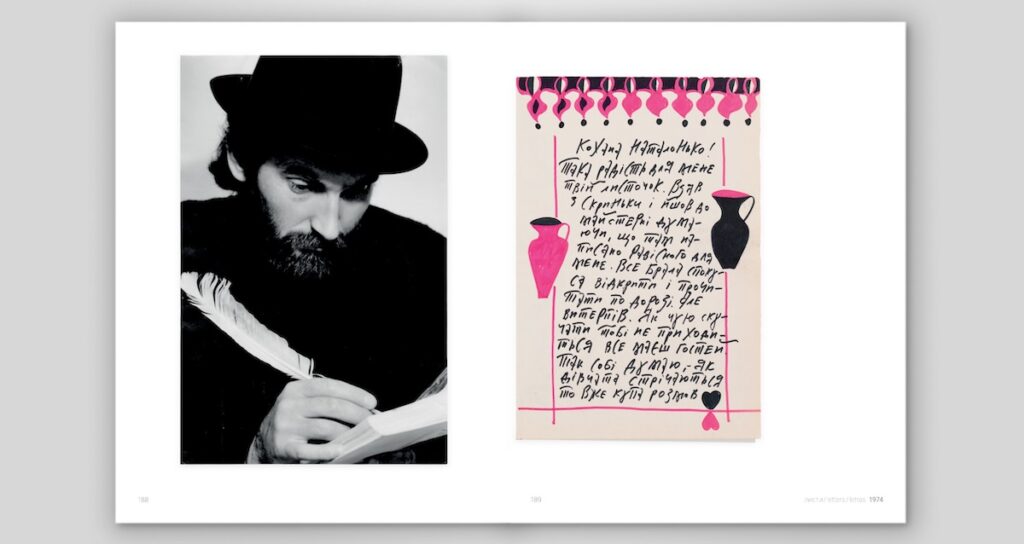 Кохана Наталонько!
Така радість для мене
твій листочок. Взяв
з скриньки і йшов до
майстерні дума-
ючи, що там на-
писано радісного для
мене. Все брала споку-
са відкрити і прочи-
тати по дорозі. Але
витерпів. Як чую ску-
чати тобі не приходи-
ться все маєш гостей.
Так собі думаю,- як
дівчата стрічаються
то вже купа розмов
188
189
1974